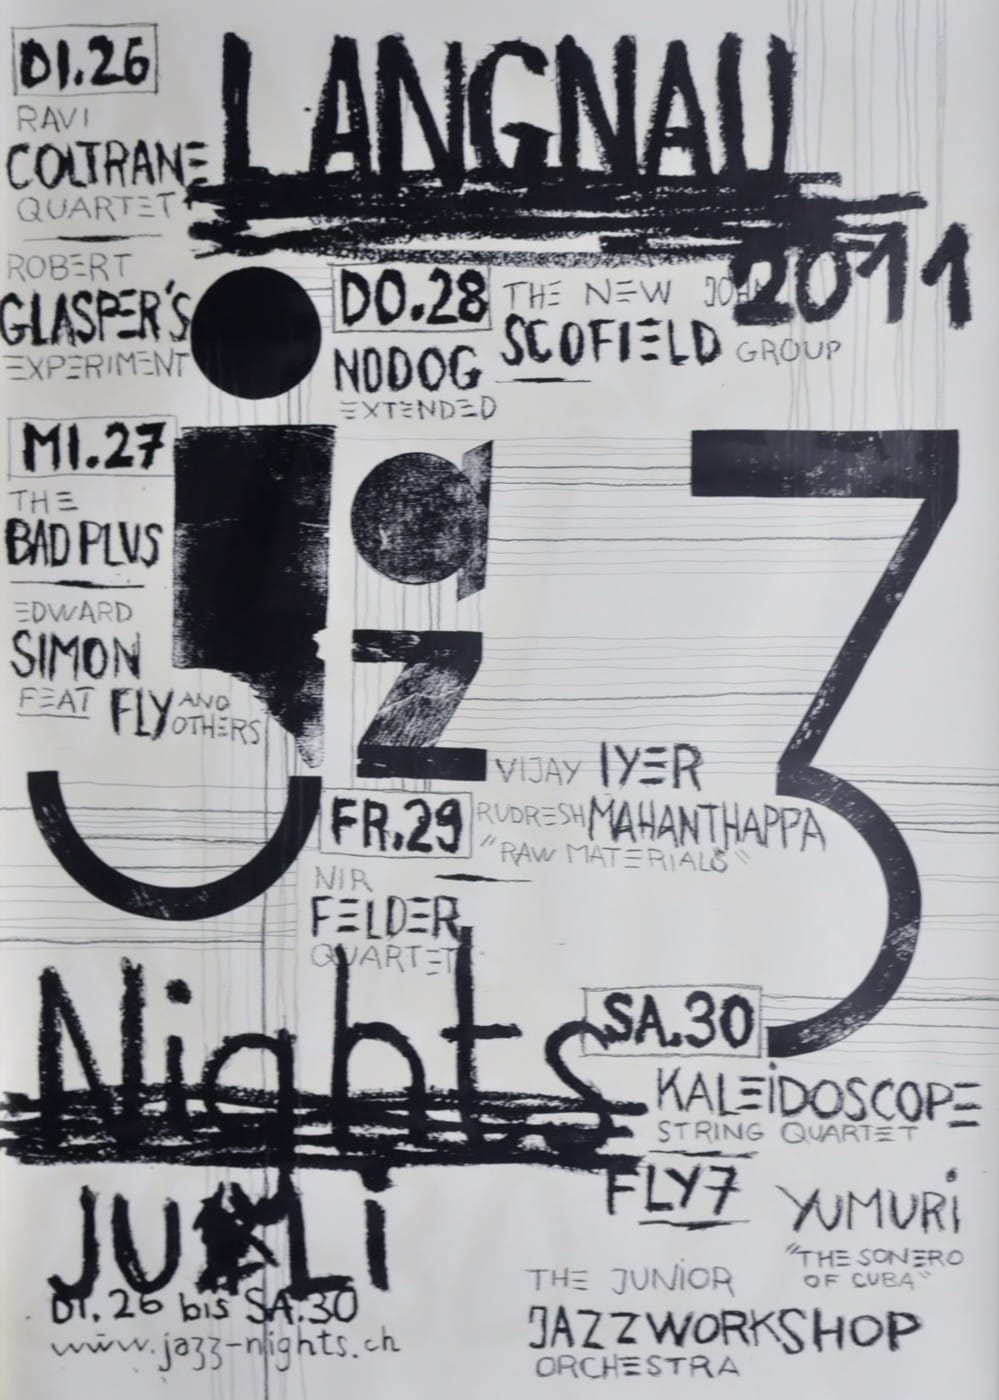 LANGNAU
2011
jazz
Nights
JULi
Di.26 bis SA.30
www.jazz-nights.ch
DI.26
RAVI
COLTRANE
QUARTET
ROBERT
GLASPER'S
EXPERIMENT
MI.27
THE
BAD PLUS
EDWARD
SIMON
FEAT FLY AND
OTHERS
DO.28
NODOG
EXTENDED
THE NEW JOHN
SCOFIELD GROUP
FR.29
VIJAY IYER
RUDRESH MAHANTHAPPA
"RAW MATERIALS"
NIR
FELDER
QUARTET
SA.30
KALEiDOSCOPE
STRING QUARTET
FLY7
YUMURi
"THE SONERO
OF CUBA"
THE JUNiOR
JAZZWORKSHOP
ORCHESTRA